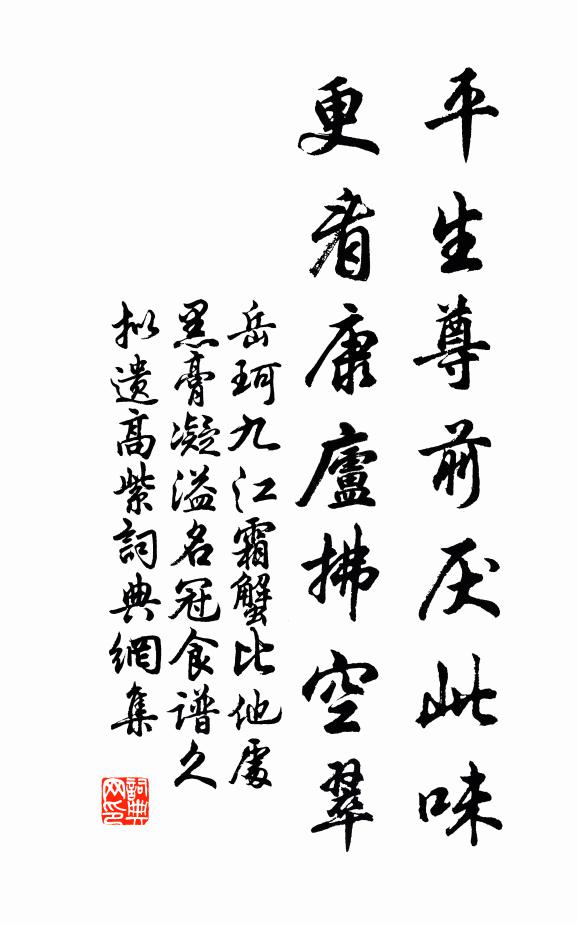 平生尊前厌此味
更看康廬拂空翠
岳珂九江霜蟹比他處
黑膏凝溢名冠食谱久
拟遗高紫詞典網集
詞典
网印